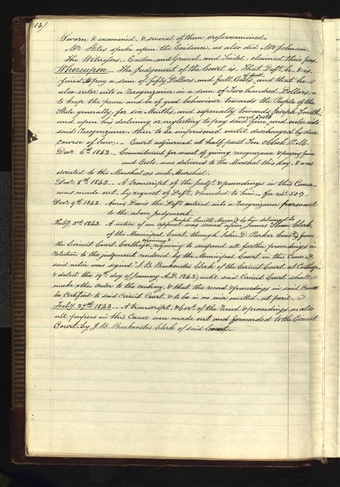 12/
Sworn & examined, & several of them crossexamined.
Mr. Stiles spoke upon the Evidence, as also did Mr. Johnson.
The Witnesses Easton and Gravel and Sadel claimed their fees.
Whereupon, The Judgment of the Court is, That Deft. be, & is
fined, & pay a sum of Fifty Dollars, and full Costs of Suit, and that he
also enter into a Recognizance in a sum of Two hundred Dollars
to keep the peace and be of good behaviour towards the People of the
State generally, for six months, and especially towards Joseph Smith,
and upon his declining or neglecting to pay said fine and Costs and enter into
said Recognizance then to be imprisoned until discharged by due
course of law. Court adjourned at half past Ten o'Clock P.M.
Decr. 6th 1843. Commitment for want of giving recognizance & paying fine
and Costs, was delivered to the Marshal this day, & was
donated to the Marshal as such Marshal.
Decr. 8th 1843. A transcript of the Judgt. & proceedings in this Cause
was made out by request of Deft. & handed to him
Decr. 9th 1843. Amos Davis the Deft. entered into a Recognizance pursuant
to the above judgment.
Feby. 3rd 1843. A notice of an appeal was served upon James Sloan Clerk
of the Municipal Court, through John D. Parker Constl. from
the Circuit Court, Carthage, requiring to suspend all further proceedings in
relation to the judgment rendered by the Municipal Court in this Cause,
said notice was signed J. B. Backenstos Clerk of the Circuit Court, at Carthage,
& dated the 19th day of January A.D. 1843, until said Circuit Court shall
make other order to the contrary, & that the record & proceedings in said Court
be Certified to said Circuit Court, & to be in no wise omitted, at peril.
Feby. 27th 1843. A transcript, & Copy of the Record & proceedings, as also
all papers in this Cause were made out and forwarded to the Circuit
Court, by J. B. Backenstos Clerk of said Court.